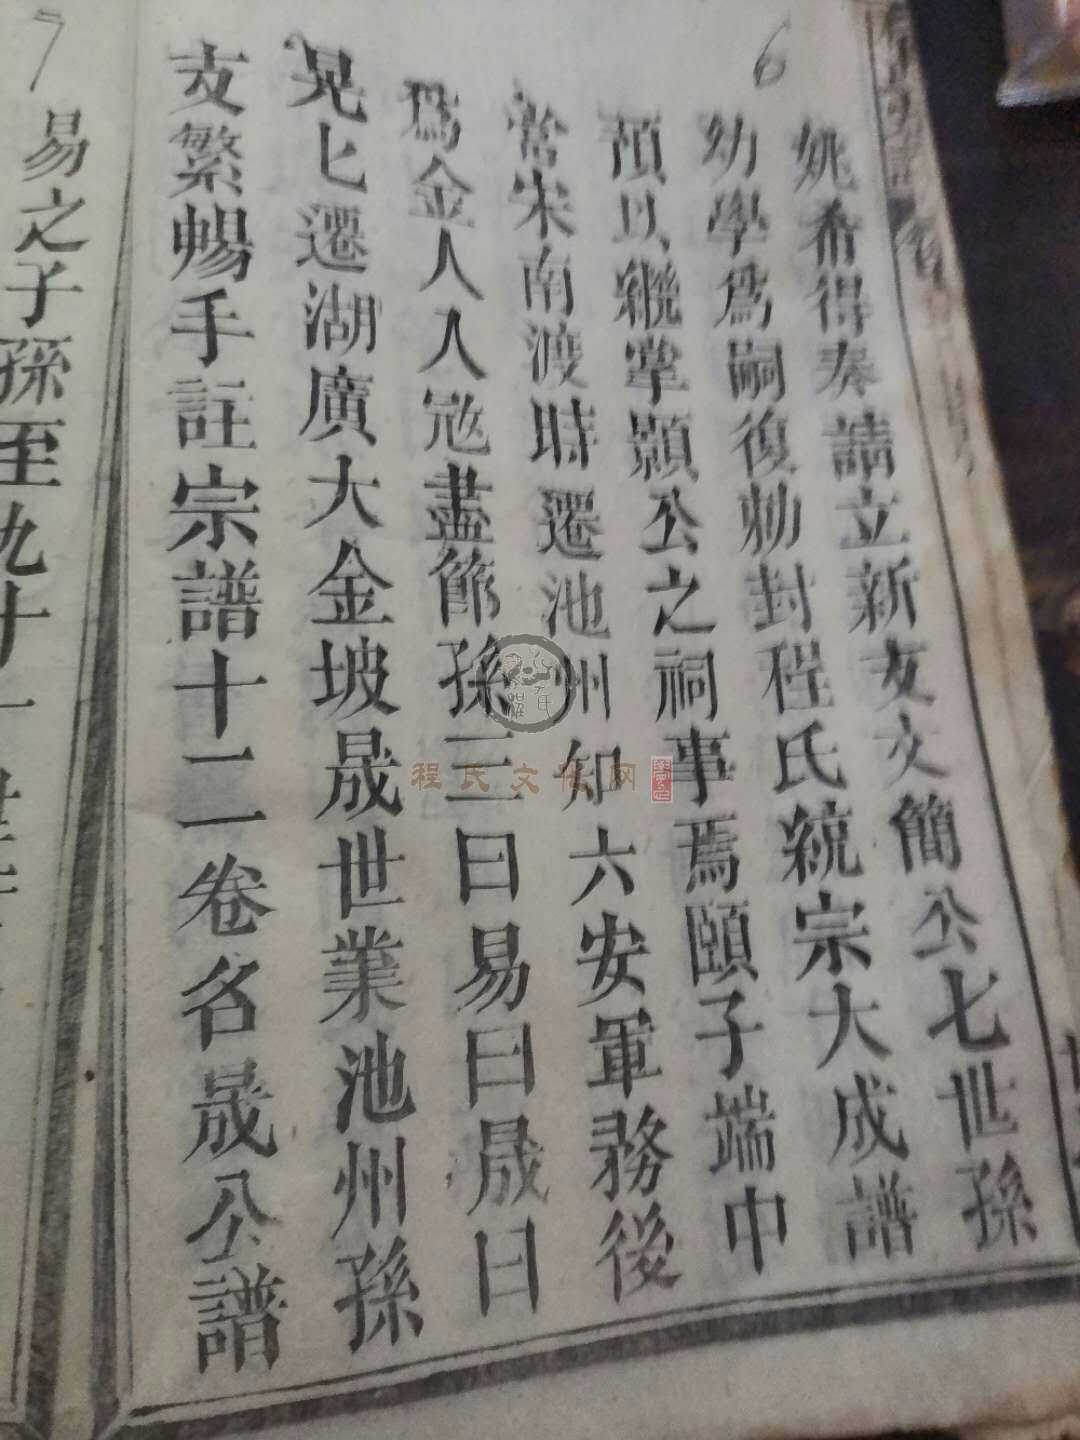 6
姚希得奏請立新友文簡公七世孫
幼學爲嗣復勅封程氏統宗大成譜
預以繼掌顥公之祠事焉頤子端中
當宋南渡時遷池州知六安軍務後
爲金人入冦盡節孫三曰易曰晟曰
晃匕遷湖廣大金坡晟世業池州孫
友繁暘手註宗譜十二卷名晟公譜
7
易之子孫至九十一世
程氏文化网